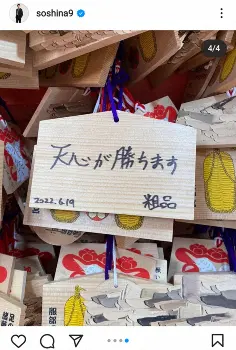 soshina9
4/4
天心が勝ちます
2022.6.19
粗品
服部